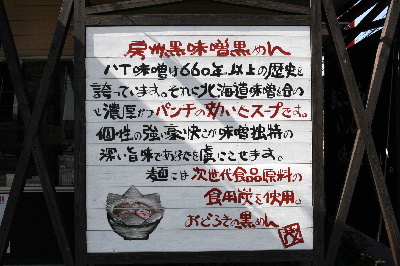 房州黒味噌黒めん
八丁味噌は660年以上の歴史を
誇っています。それに北海道味噌を合わ
せ濃厚かつパンチの効いたスープです。
個性の強い豪快さが味噌独特の
深い旨味であなたを虜にさせます。
麺には次世代食品原料の
食用炭を使用。
おどろきの黒めん